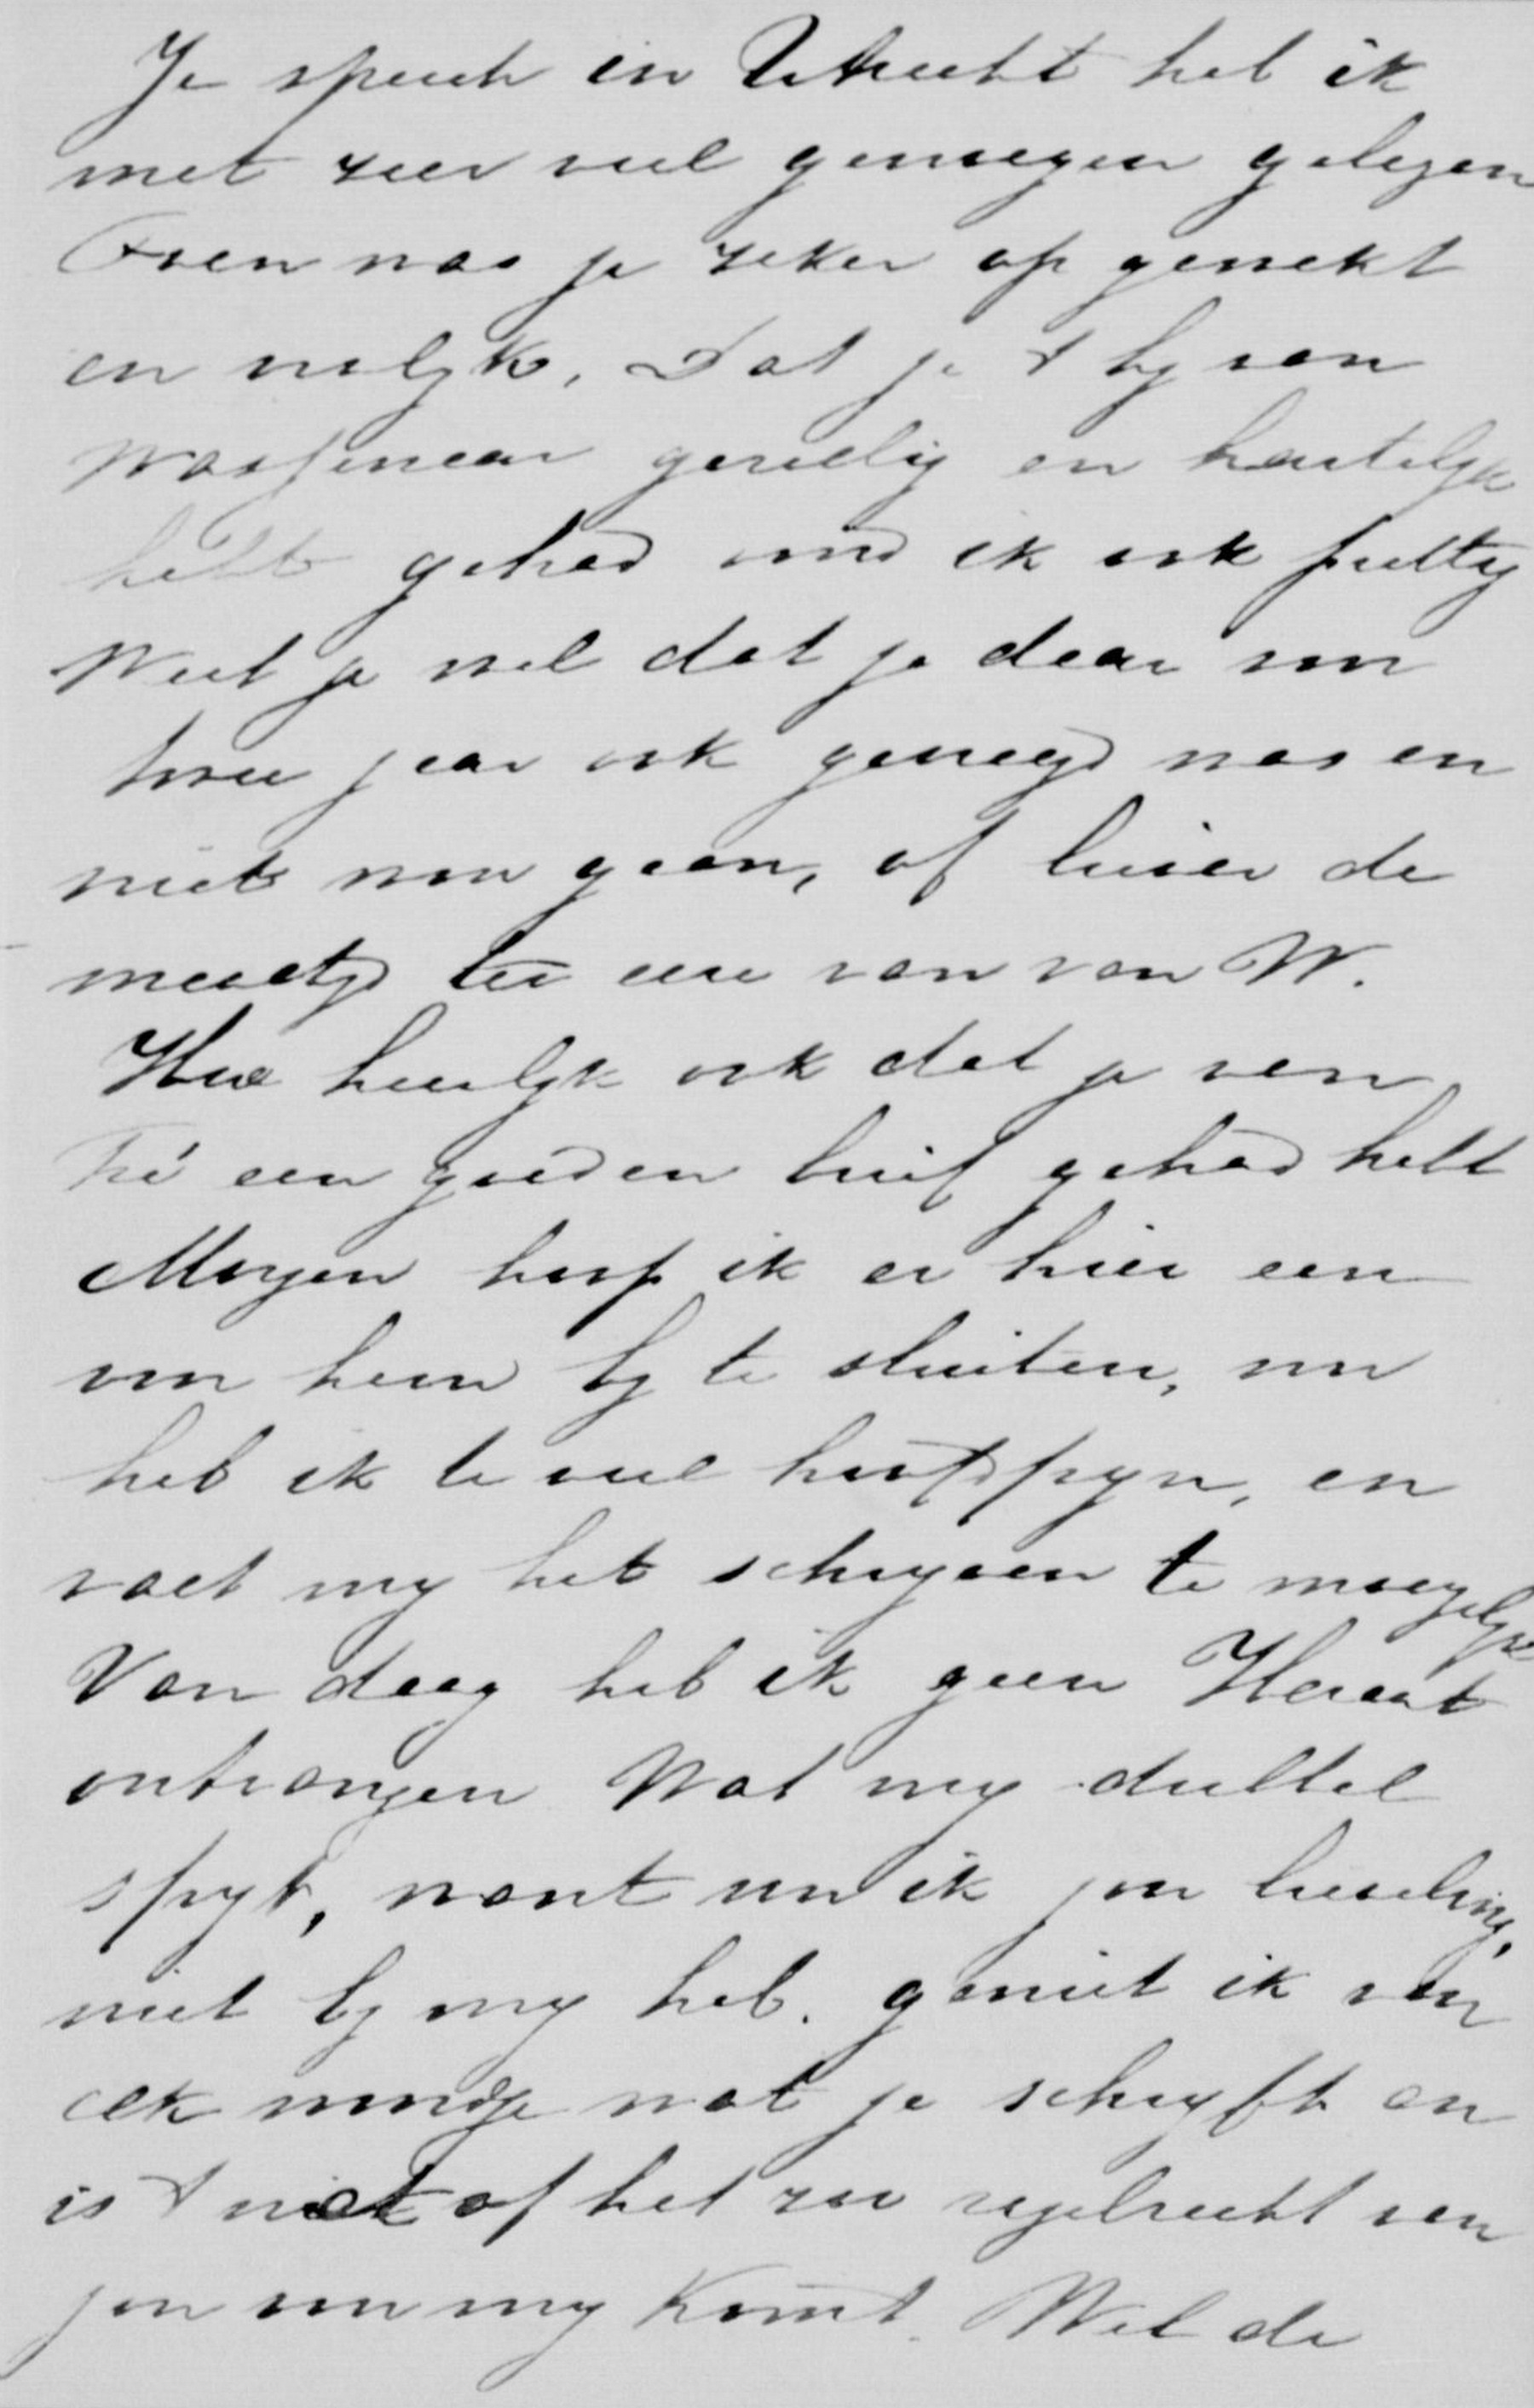 Je speech in Utrecht heb ik
met zeer veel genoegen gelezen
Toen was je zeker op gewekt
en vrolyk. Dat je 't by van
Wassenaar gezellig en hartelyk
hebt gehad vind ik ook prettig
Weet je wel dat je daar voor
twee jaar ook gevraagd was en
niet won gaan, of liever de
maaltyd ter eere van van W.
Hoe heerlyk ook dat je van
een goeden brief gehad hebt
Morgen hoop ik er hier een
van hem by te sluiten, nu
heb ik te veel hoofdpyn, en
valt my het schryven te moeyelyk
Van daag heb ik geen Heraut
ontvangen Wat my dubbel
spyt, want nu ik jou lieveling,
niet by my heb. geniet ik van
elk woordje wat je schryft en
is 't net of het zoo regelrecht van
jou voor my komt. Wel de